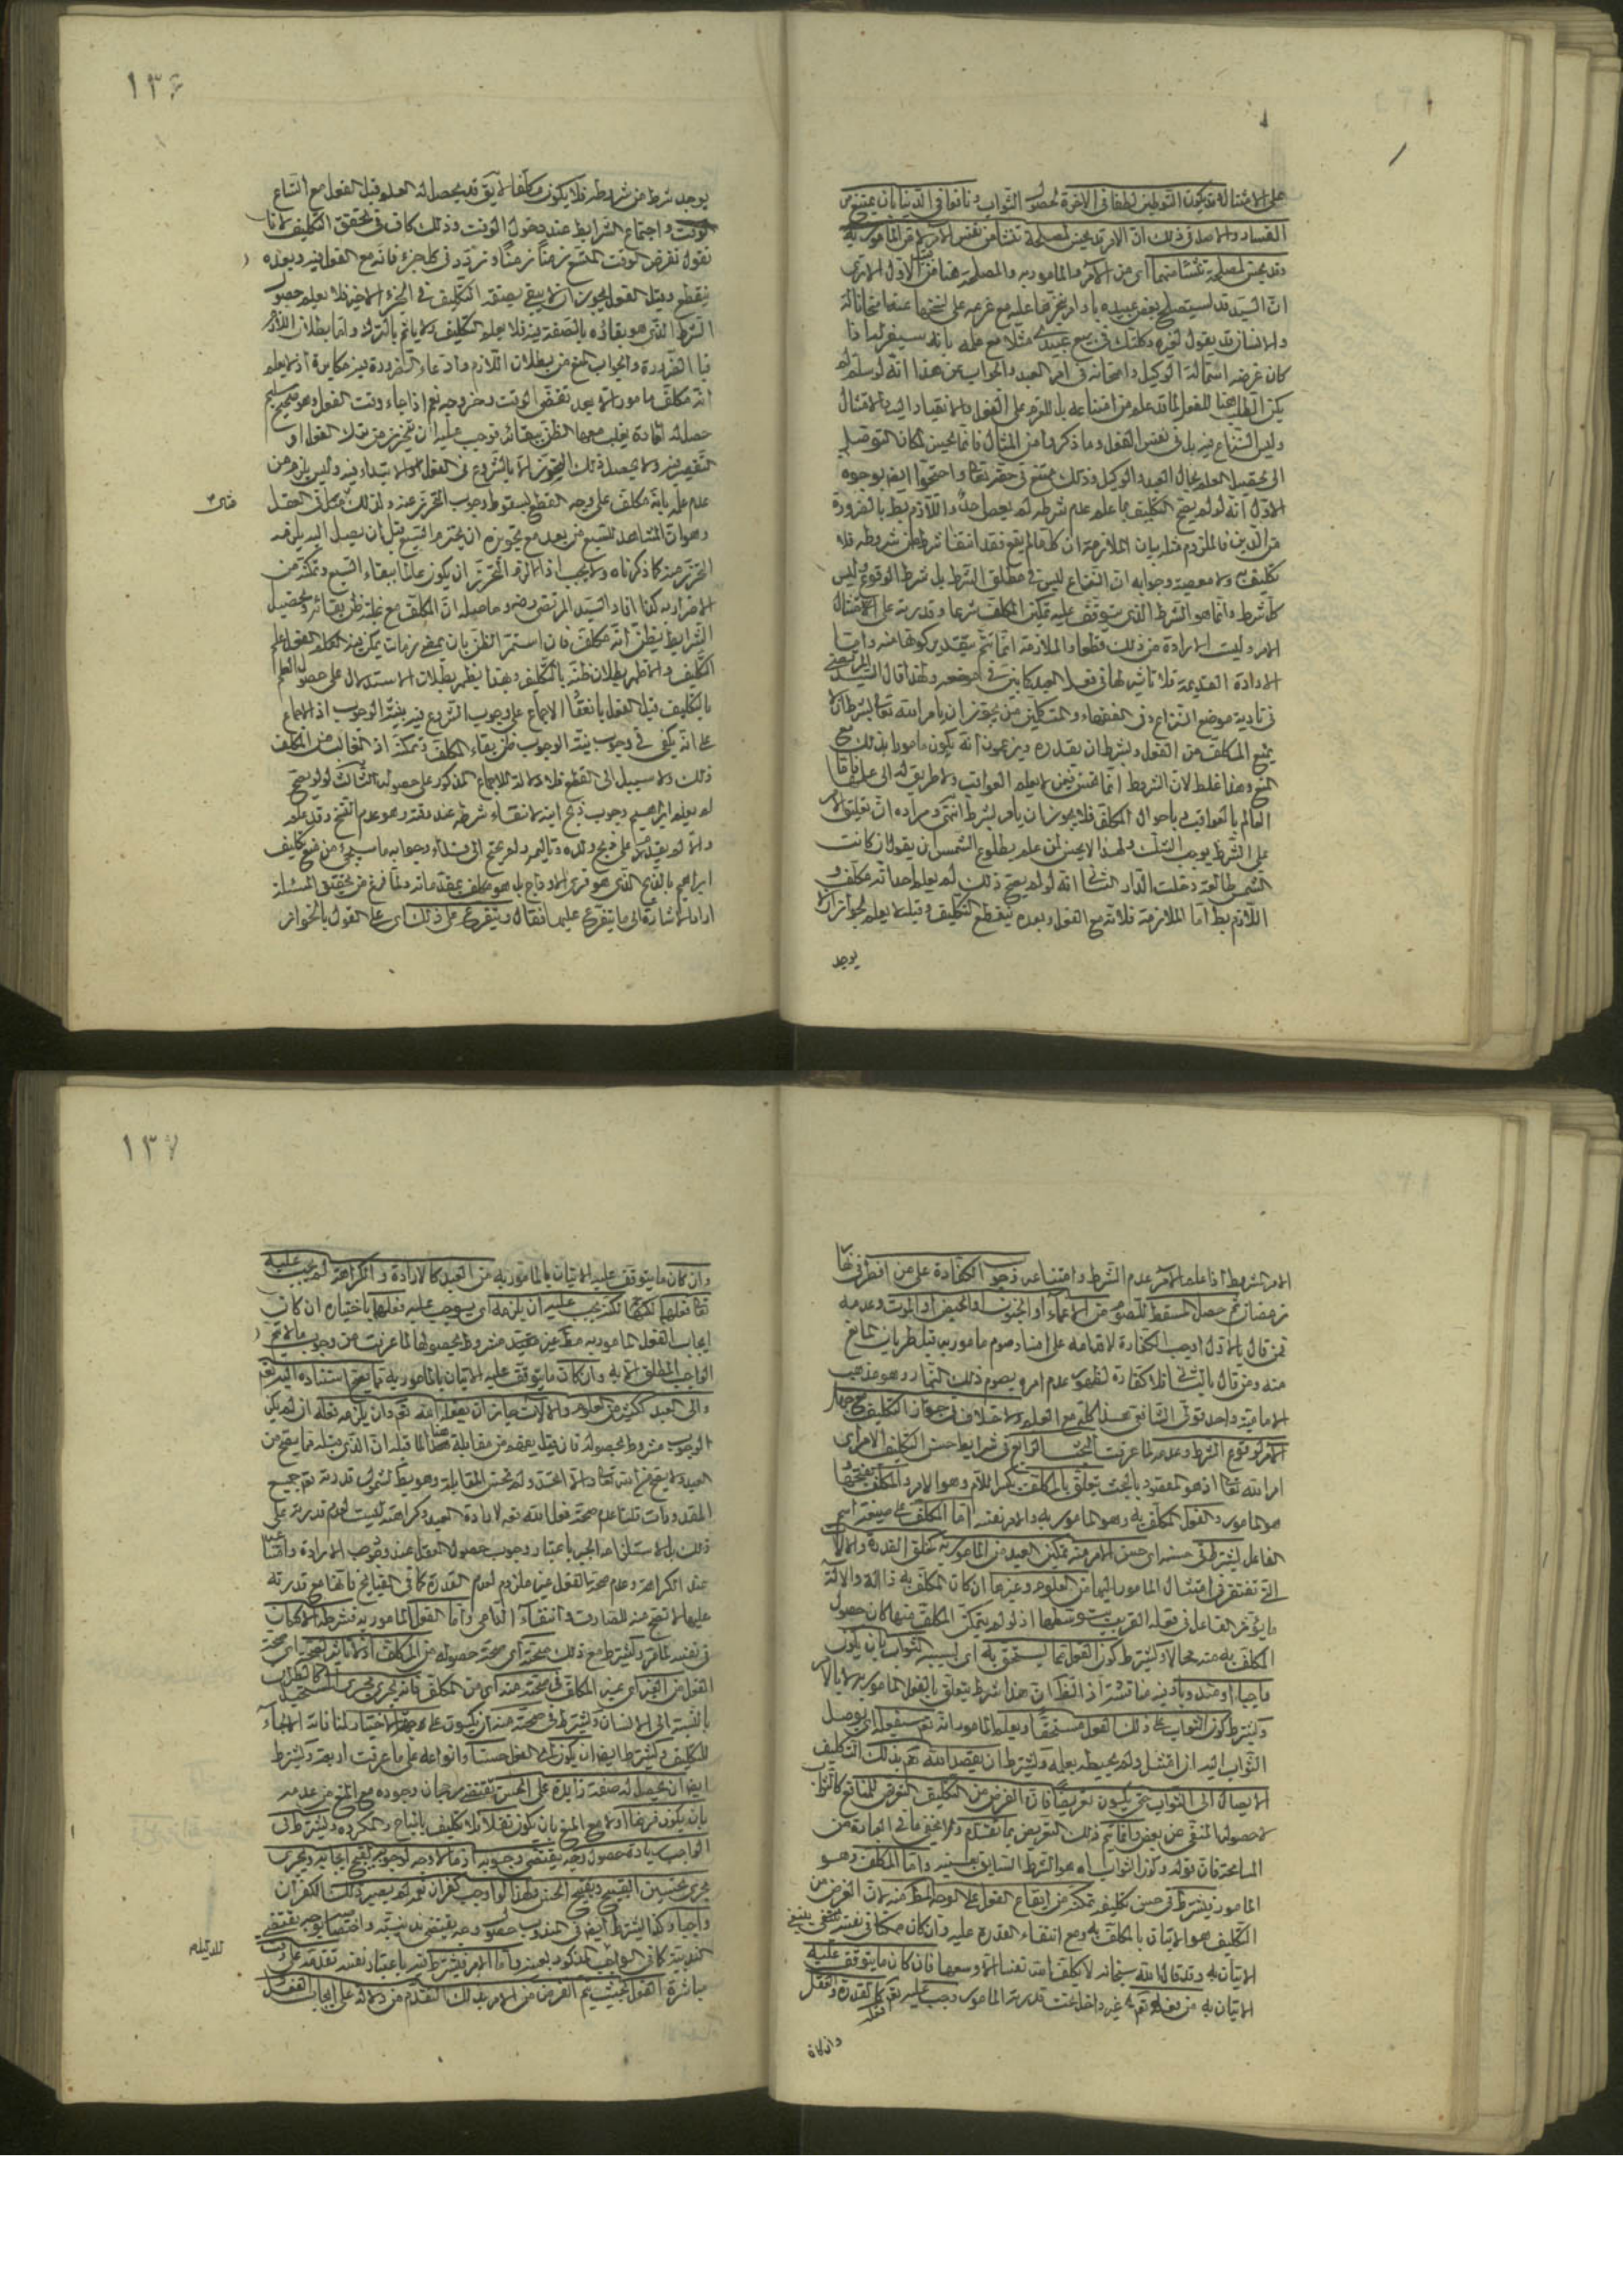 على الامتثال قد يكون التوطين لطفا في الآخرة لحصول الثواب ونافعا في الدنيا بان يمتنع من
الفساد والاصل في ذلك ان الامر قد يحسن لمصلحة تنشأ من نفس الامر لا من المأمور به
وقد يحسن لمصلحة تنشأ منهما اى من الامر والمأمور به والمصلحة هنا من الاول الا ترى
ان السيد قد يستصلح بعض عبيده باوامر ينجزها عليه مع عزمه على نسخها عنه امتحانا له
والانسان قد يقول لغيره وكلتك في بيع عبدى مثلا مع علمه بانه سيعزله اذا
كان غرضه استمالة الوكيل وامتحانه في امر العبد والجواب عن هذا انه لو سلم لم
يكن الطلب هنا للفعل لما قد علم من امتناعه بل للعزم على الفعل والانقياد اليه والامتثال
وليس النزاع فيه بل في نفس الفعل وما ذكروه من المثال فانما يحسن لمكان التوصل
الى تحصيل العلم بحال العبد والوكيل وذلك ممتنع في حقه تعالى واحتجوا ايضا بوجوه
الاول انه لو لم يصح التكليف بما علم عدم شرطه لم يعص احد واللازم بط بالضرورة
من الدين فالملزوم مثله بيان الملازمة ان كل ما لم يقع فقد انتفى شرط من شروطه فلا
تكليف ولا معصية وجوابه ان النزاع ليس في مطلق الشرط بل شرط الوقوع وليس
كل شرط وانما هو الشرط الذى يتوقف عليه تمكن المكلف شرعا وقدرته على الامتثال
الامر وليست الارادة من ذلك قطعا والملازمة انما تتم بتقدير كونها منه واما
الارادة القديمة فلا تاثير لها في فعل العبد كما بين في موضعه ولهذا قال السيد المرتضى
في تادية موضع النزاع وفي الفقهاء والمتكلمين من يجوز ان يأمر الله تعالى بشرط ان لا
يمنع المكلف من الفعل وبشرط ان يقدره ويزعمون انه يكون مامورا بذلك مع
المنع وهذا غلط لان الشروط انما تحسن فيمن لا يعلم العواقب ولا طريق له الى علمها فاما
العالم بالعواقب وباحوال المكلف فلا يجوز ان يأمره بشرط انتهى ومراده ان تعليق الامر
على الشرط يوجب الشك ولهذا لا يحسن لمن علم بطلوع الشمس ان يقول ان كانت
الشمس طالعة دخلت الدار الثانى انه لو لم يصح ذلك لم يعلم احد انه مكلف و
اللازم بط اما الملازمة فلانه مع الفعل وبعده ينقطع التكليف وقبله لا يعلم لجواز ان لا
يوجد
١٣٦
يوجد شرط من شرايطه فلا يكون مكلفا لا يق قد يحصل له العلم قبل الفعل مع اتساع
الوقت واجتماع الشرايط عند دخول الوقت وذلك كاف في تحقق التكليف لانا
نقول نفرض الوقت المتسع زمنا زمنا ونردد في كل جزء فانه مع الفعل فيه وبعده
ينقطع وقبل الفعل يجوز ان لا يبقى بصفة التكليف في الجزء الاخير فلا يعلم حصول
الشرط الذى هو بقاؤه بالصفة فيه فلا يعلم التكليف ولا يأثم بالترك واما بطلان اللازم
فبالضرورة والجواب المنع من بطلان اللازم وادعاء الضرورة فيه مكابرة اذ لا يعلم
انه مكلف مامور الا بعد تقضى الوقت وخروجه نعم اذا جاء وقت الفعل وهو صحيح سليم
حصل له امارة يغلب معها الظن ببقائه فوجب عليه ان يتحرز من ترك الفعل او
التقصير فيه ولا يحصل ذلك التحرز الا بالشروع في الفعل والابتداء فيه وليس يلزم من
عدم علمه بانه مكلف على وجه القطع لسقوط وجوب التحرز عنه ولذلك مثال في العقل
وهو ان المشاهد للسبع من بعد مع تجويزه ان يخترم السبع قبل ان يصل اليه يلزمه
التحرز منه كما ذكرناه ولا يجب اذا لزمه التحرز ان يكون عالما ببقاء السبع وتمكنه من
الاضرار به كذا افاد السيد المرتضى رضه وحاصله ان المكلف مع غلبة ظن بقائه وتحصيل
الشرايط يظن انه مكلف فان استمر الظن بان يمضى زمان يمكن فيه الفعل علم
التكليف والا ظهر بطلان ظنه بالتكليف وبهذا يظهر بطلان الاستدلال على حصول العلم
بالتكليف قبل الفعل بانعقاد الاجماع على وجوب الشروع فيه بنية الوجوب اذ الاجماع
على انه يكفى في وجوب نية الوجوب ظن بقاء المكلف وتمكنه اذ الغالب من المكلف
ذلك ولا سبيل الى القطع فلا دلالة للاجماع المذكور على حصوله الثالث لو لم يصح
لم يعلم ابراهيم وجوب ذبح ابنه لانتفاء شرطه عند وقته وهو عدم النسخ وقد علم
والا لم يقدم على ذبح ولده وتاليه ولم يحتج الى فداء وجوابه ما سيجئ من منع تكليف
ابراهيم بالذبح الذى هو فرى الاوداج بل هو مكلف بمقدماته ولما فرغ من تحقيق المسئلة
اراد الاشارة الى ما يتفرع عليها فقال ويتفرع على ذلك اى على القول بالجواز
الامر المشروط اذا علم الآمر عدم الشرط وامتناعه وجوب الكفارة على من افطر في نها
ر رمضان ثم حصل المسقط للصوم من الاغماء او الجنون او الحيض او الموت وعدمه
فمن قال بالاول اوجب الكفارة لاقدامه على افساد صوم مامور به قبل طريان المانع
منه ومن قال بالثانى فلا كفارة لظهور عدم امره بصوم ذلك النهار وهو مذهب
الامامية واحد قولى الشافعى هذا كله مع العلم ولا خلاف في جواز التكليف مع جهل
الآمر لوقوع الشرط وعدمه لما عرفت البحث الرابع في شرايط حسن التكليف الامرى
امر الله تعالى اذ هو المقصود بالبحث يتعلق بالمكلف بكسر اللام وهو الآمر والمكلف بفتحها
هو المامور والفعل المكلف به وهو المامور به والامر نفسه اما المكلف على صيغة اسم
الفاعل يشترط في حسنه اى حسن الامر منه تمكين العبد من المامور به كخلق القدرة والآلات
التى تفتقر في امتثال المامور اليها من العلوم وغيرها ان كان المكلف به ذا آلة والآلة
ما يؤثر الفاعل في فعله القريب بتوسطها اذ لو لم يتمكن المكلف منها كان حصول
المكلف به منه محالا ويشترط كون الفعل مما يستحق به اى بسببه الثواب بان يكون
واجبا او مندوبا وفيه مناقشة اذ الظ ان هذا شرط يتعلق بالفعل المامور به لا بالآمر
ويشترط كون الثواب على ذلك الفعل مستحقا ويعلم المامور انه تعالى سيفعله اى يوصل
الثواب اليه ان امتثل ولم يحبطه بعلمه ويشترط ان يقصد الله تعالى بذلك التكليف
الايصال الى الثواب حتى يكون تعريضا فان الغرض من التكليف التعرض للمنافع كالثواب
لا حصول المنفى عن بعض وانما يتم ذلك التعريض بما تقدم ولا يخفى ما في العبارة من
المسامحة فان قوله وكون الثواب اه هو الشرط السابق بعينه واما المكلف وهو
المامور فيشترط في حسن تكليفه تمكنه من ايقاع الفعل على الوجه المطلوب منه لان الغرض من
التكليف هو الاتيان بالمكلف به ومع انتفاء القدرة عليه وان كان ممكنا في نفسه ينتفى
الاتيان به وقد قال الله سبحانه لا يكلف الله نفسا الا وسعها فان كان ما يتوقف عليه
الاتيان به من فعله تعالى غير داخل تحت قدرة المامور وجب عليه تعالى كالقدرة والعقل
فعله
وان كان
١٣٧
وان كان ما يتوقف عليه الاتيان بالمامور به من العبد كالارادة والكراهة لم يجب عليه
تعالى فعلها لكن يجب عليه ان يلزمه اى يوجب عليه فعلها باختياره ان كان
ايجاب الفعل المامور به مطلقا غير مقيد مشروط بحصولها لما عرفت من وجوب ما لا يتم
الواجب المطلق الا به وان كان ما يتوقف عليه الاتيان بالمامور به مما يصح استناده اليه تعالى
والى العبد ككثير من العلوم والآلات جاز ان يفعله الله تعالى وان يلزمه فعله ان لم يكن
الوجوب مشروطا بحصوله فان قيل يفهم من مقابلة هذا لما قبله ان الذى قبله مما يصح من
العبد ولا يصح من الله تعالى والا لم تحسن المقابلة وهو بط لشمول قدرته تعالى جميع
المقدورات قلنا عدم صحة فعل الله تعالى لارادة العبد وكراهته ليست لعدم قدرته على
ذلك بل لاستلزامه الجبر باعتبار وجوب حصول الفعل عند وجوب الارادة وامتناعه
عند الكراهة وعدم صحة الفعل غير ملزوم لعدم القدرة كما في القبايح فانها مع قدرته
عليها لا تصح منه للصارف وانتفاء الداعى واما الفعل المامور به فشرطه الامكان
في نفسه لما مر ويشترط مع ذلك صحته اى صحة حصوله من المكلف اذ لا تاثير لصحة
الفعل من الغير اى غير المكلف في صحته منه اى من المكلف فانه يجرى مجرى المستحيل كالطيران
بالنسبة الى الانسان ويشترط في صحته منه ان يكون على جهة الاختيار لمنافاة الالجاء
للتكليف ويشترط ايضا ان يكون الفعل حسنا وانواعه على ما عرفت اربعة ويشترط
ايضا ان يحصل له صفة زايدة على الحسن تقتضى رجحان وجوده مع المنع من عدمه
بان يكون فرضا او لا مع المنع بان يكون نفلا فلا تكليف بالمباح والمكروه ويشترط في
الواجب زيادة حصول وجه يقتضى وجوبه اذ ما لا وجه لوجوبه يقبح ايجابه ويجرى
مجرى تحسين القبيح وتقبيح الحسن ولهذا لو اوجب كفران نعمه لم يصير ذلك الكفران
واجبا وكذا يشترط ايضا في المندوب حصول وجه يقتضى ندبيته واختصاصه بوجه يقتضى
الندبية كما في الواجب المذكور بعينه واما الامر فيشترط فيه باعتبار نفسه تقدمه على وقت
مباشرة الفعل بحيث يتم الغرض من الامر بذلك التقدم من دلالته على ايجاب الفعل